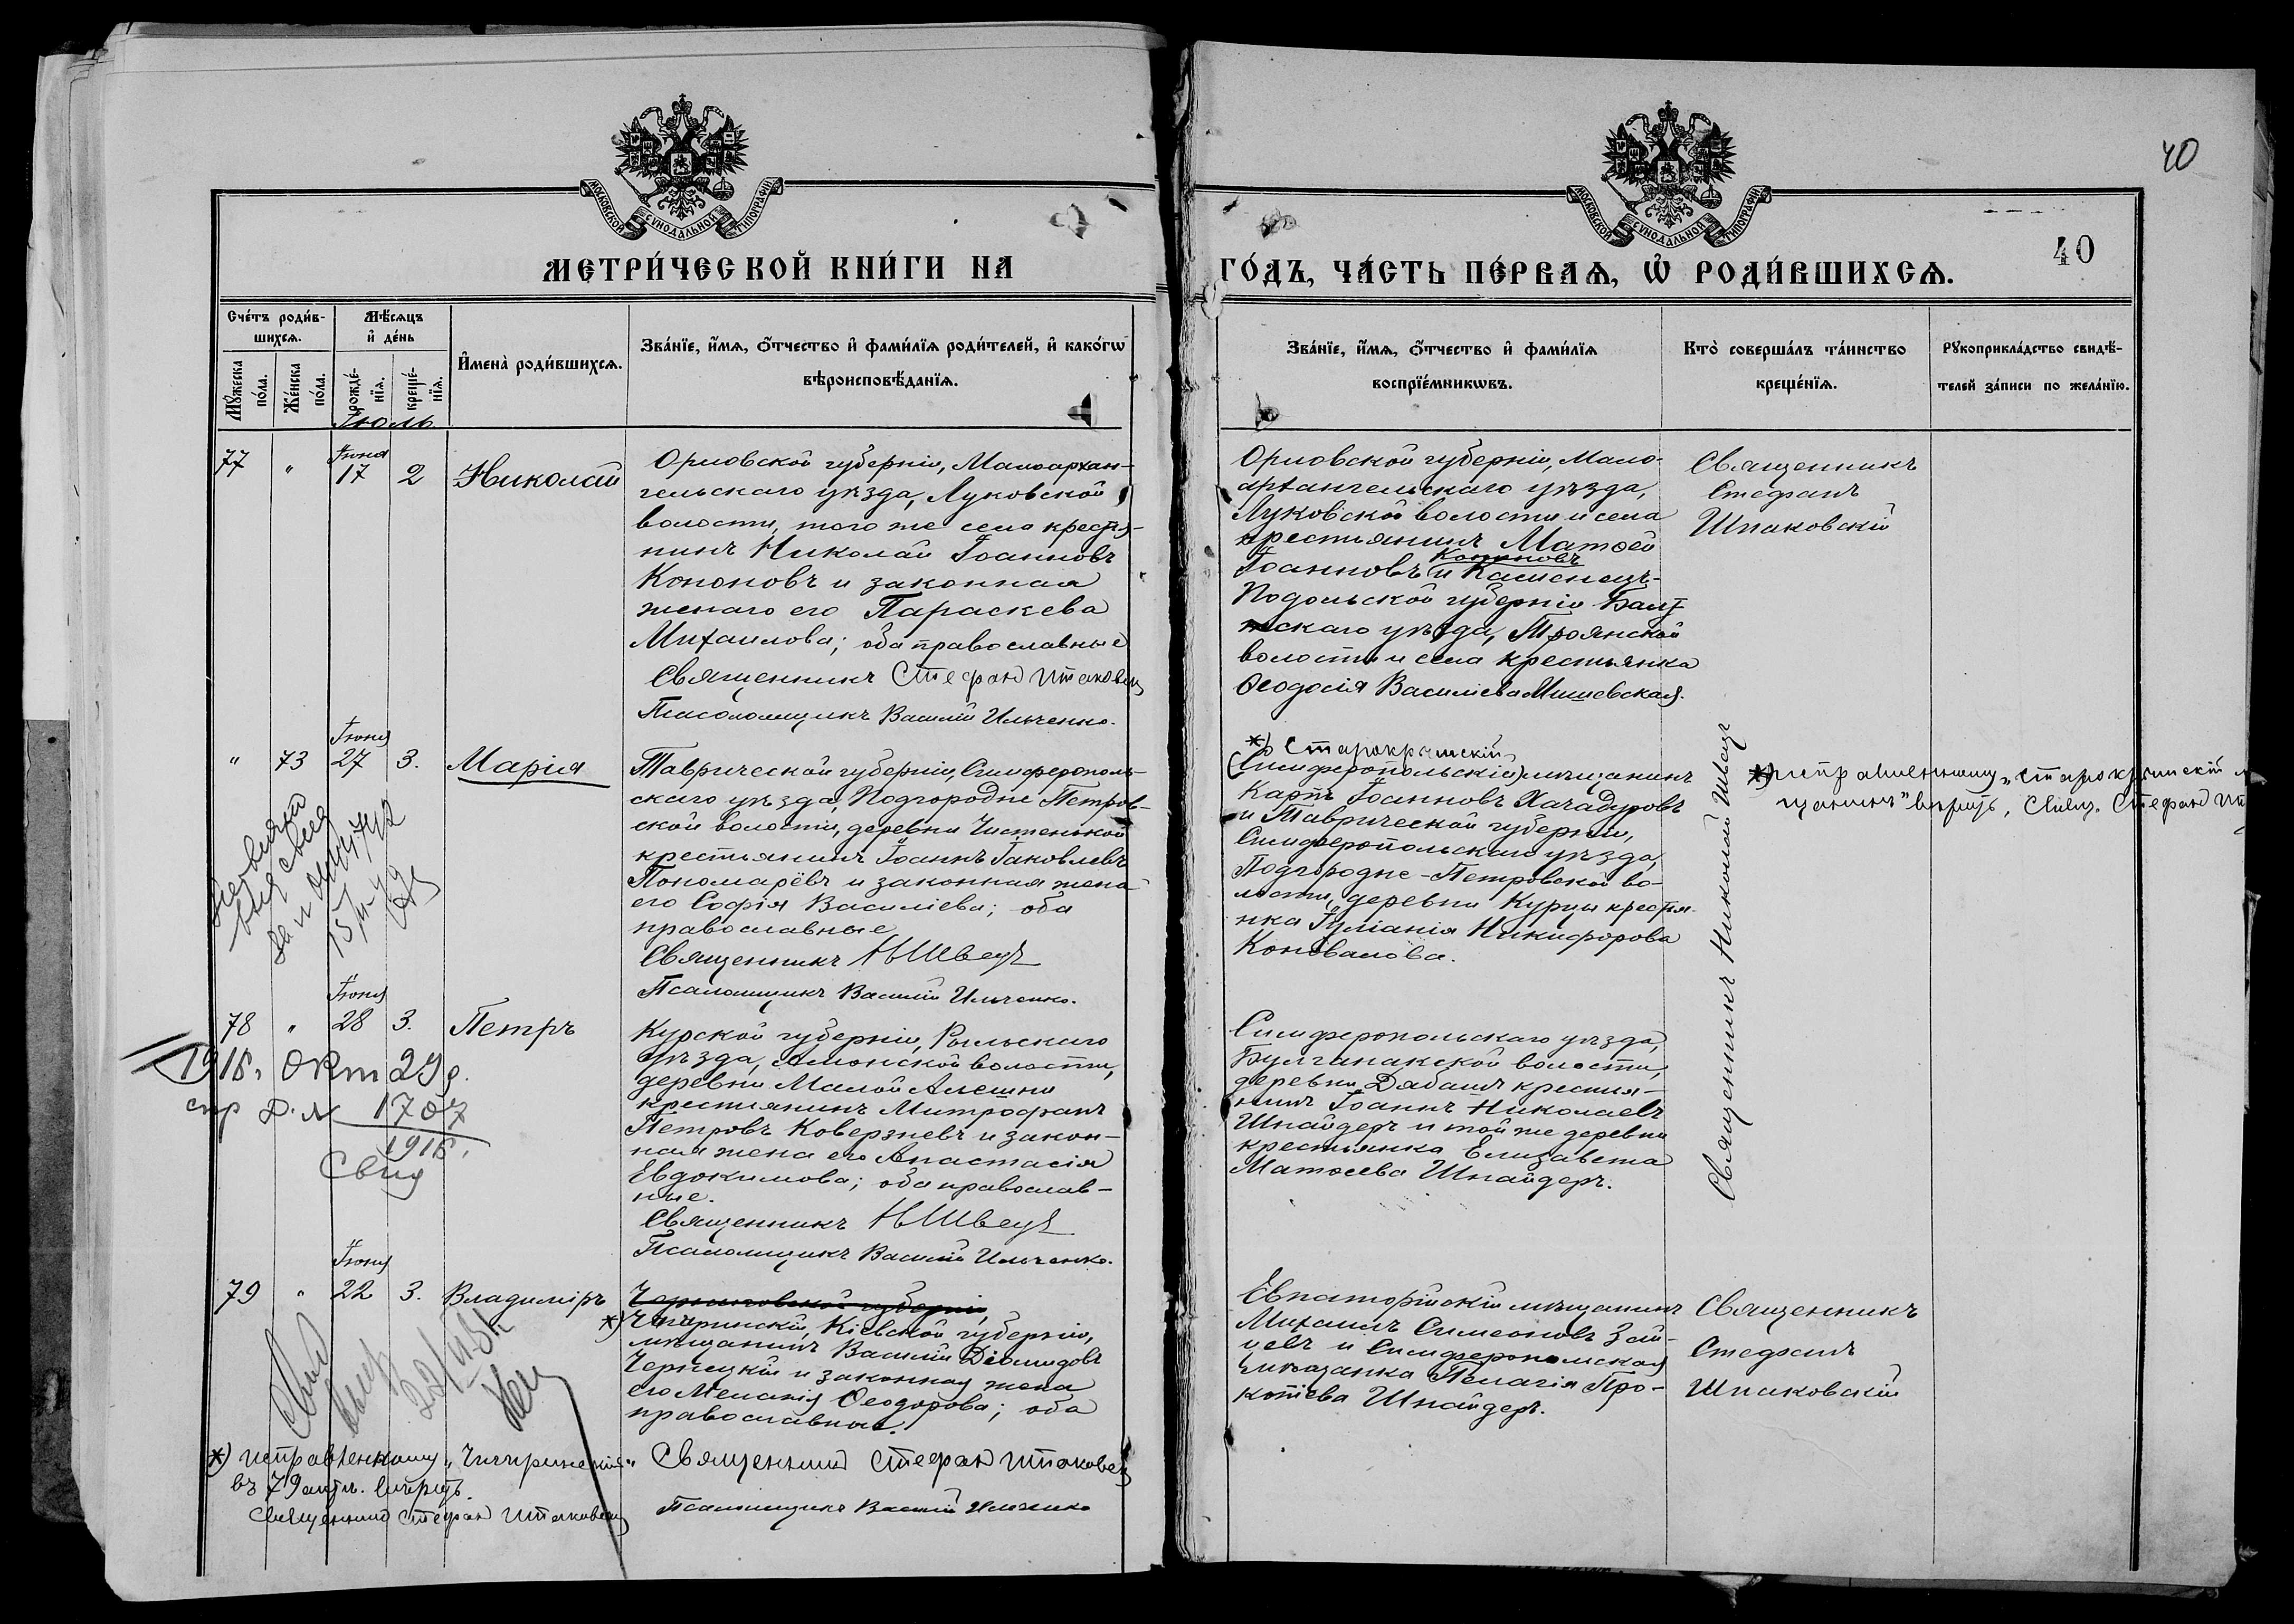 40
МОСКОВСКОЙ СѴНОДАЛЬНОЙ ТИПОГРАФІИ
МЕТРИ́ЧЕСКОЙ КНИ́ГИ НА
Сче́тъ роди́вшихсѧ.
Мꙋ́жеска по́ла.
Же́нска по́ла.
Мѣ́сѧцъ и҆ де́нь
рожде́нїѧ.
креще́нїѧ.
И҆мена̀ роди́вшихсѧ.
Зва́нїе, и҆́мѧ, ѻ҆́тчество и҆ фами́лїѧ роди́телей, и҆ како́гѡ
вѣроисповѣ́данїѧ.
Іюль
77 " Іюня 17 2 Николай
Орловской губерніи, Малоархан-
гельскаго уѣзда, Луковской
волости, того же села крестья-
нинъ Николай Іоанновъ
Кононовъ и законная
женаго его Параскева
Михаилова; оба православные
Священникъ Стефан Шпаковск
Псаломщикъ Василій Ильченко.
" 73 Іюня 27 3. Марія
Таврической губерніи, Симферополь-
скаго уѣзда, Подгородне Петров-
ской волости, деревни Чистенькой
крестьянинъ Іоаннъ Іаковлевъ
Пономарёвъ и законная жена
его Софія Василіева; оба
православные
Священникъ Н Швецъ
Псаломщикъ Василій Ильченко.
78 " Іюня 28 3. Петръ
1918. Окт 29
1707
1918.
Свид
Курской губерніи, Рыльскаго
уѣзда, волости,
деревни Малой Алешни
крестьянинъ Митрофанъ
Петровъ Коверзневъ и закон-
ная жена его Анастасія
Евдокимова; оба православ-
ные.
Священникъ Н Швецъ
Псаломщикъ Василій Ильченко.
79 " Іюня 22 3. Владиміръ
Черниговской губерніи,
*) Чигиринскій, Кіевской губерніи,
мѣщанинъ Василій Діомидовъ
Чернецкій и законная жена
его Меланія Ѳеодорова; оба
православные.
*) исправленному „Чигиринскій“
въ 79 акт. вѣрить.
Священник Стефан Шпаковск
Священник Стефан Шпаковск
Псаломщикъ Василій Ильченко
40
МОСКОВСКОЙ СѴНОДАЛЬНОЙ ТИПОГРАФІИ
ГО́ДЪ, ЧА́СТЬ ПЕ́РВАѦ, Ѽ РОДИ́ВШИХСѦ.
Зва́нїе, и҆́мѧ, ѻ҆́тчество и҆ фами́лїѧ
воспрїе́мникѡвъ.
Кто̀ соверша́лъ та́инство
креще́нїѧ.
Рꙋкоприкла́дство свидѣ́-
телей за́писи по жела́нїю.
Орловской губерніи, Мало-
архангельскаго уѣзда,
Луковской волости и села
крестьянинъ Матѳей
Іоанновъ Кононовъ и Каменецъ-
Подольской губерніи Балт
скаго уѣзда, Троянской
волости и села крестьянка
Ѳеодосія Василіева Мишевская.
Священникъ
Стефанъ
Шпаковскій
*) Старокрымскій
(Симферопольскій) мѣщанинъ
Карпъ Іоанновъ Хачадуровъ
и Таврической губерніи,
Симферопольскаго уѣзда,
Подгородне-Петровской во-
лости, деревни Курцы крестья-
нка Іуліанія Никифорова
Коновалова.
Священникъ Николай Швецъ
*) исправленному „Старокрымскій
щанинъ" вѣрить, Свящ. Стефан Шп
Симферопольскаго уѣзда,
Булганакской волости,
деревни Джабачъ крестья-
нинъ Іоаннъ Николаевъ
Шнайдеръ и той же деревни
крестьянка Елизавета
Матѳеева Шнайдеръ.
Евпаторійскій мѣщанинъ
Михаилъ Симеоновъ Зай-
цевъ и Симферопольская
мѣщанка Пелагія Про-
копіева Шнайдеръ.
Священникъ
Стефанъ
Шпаковскій